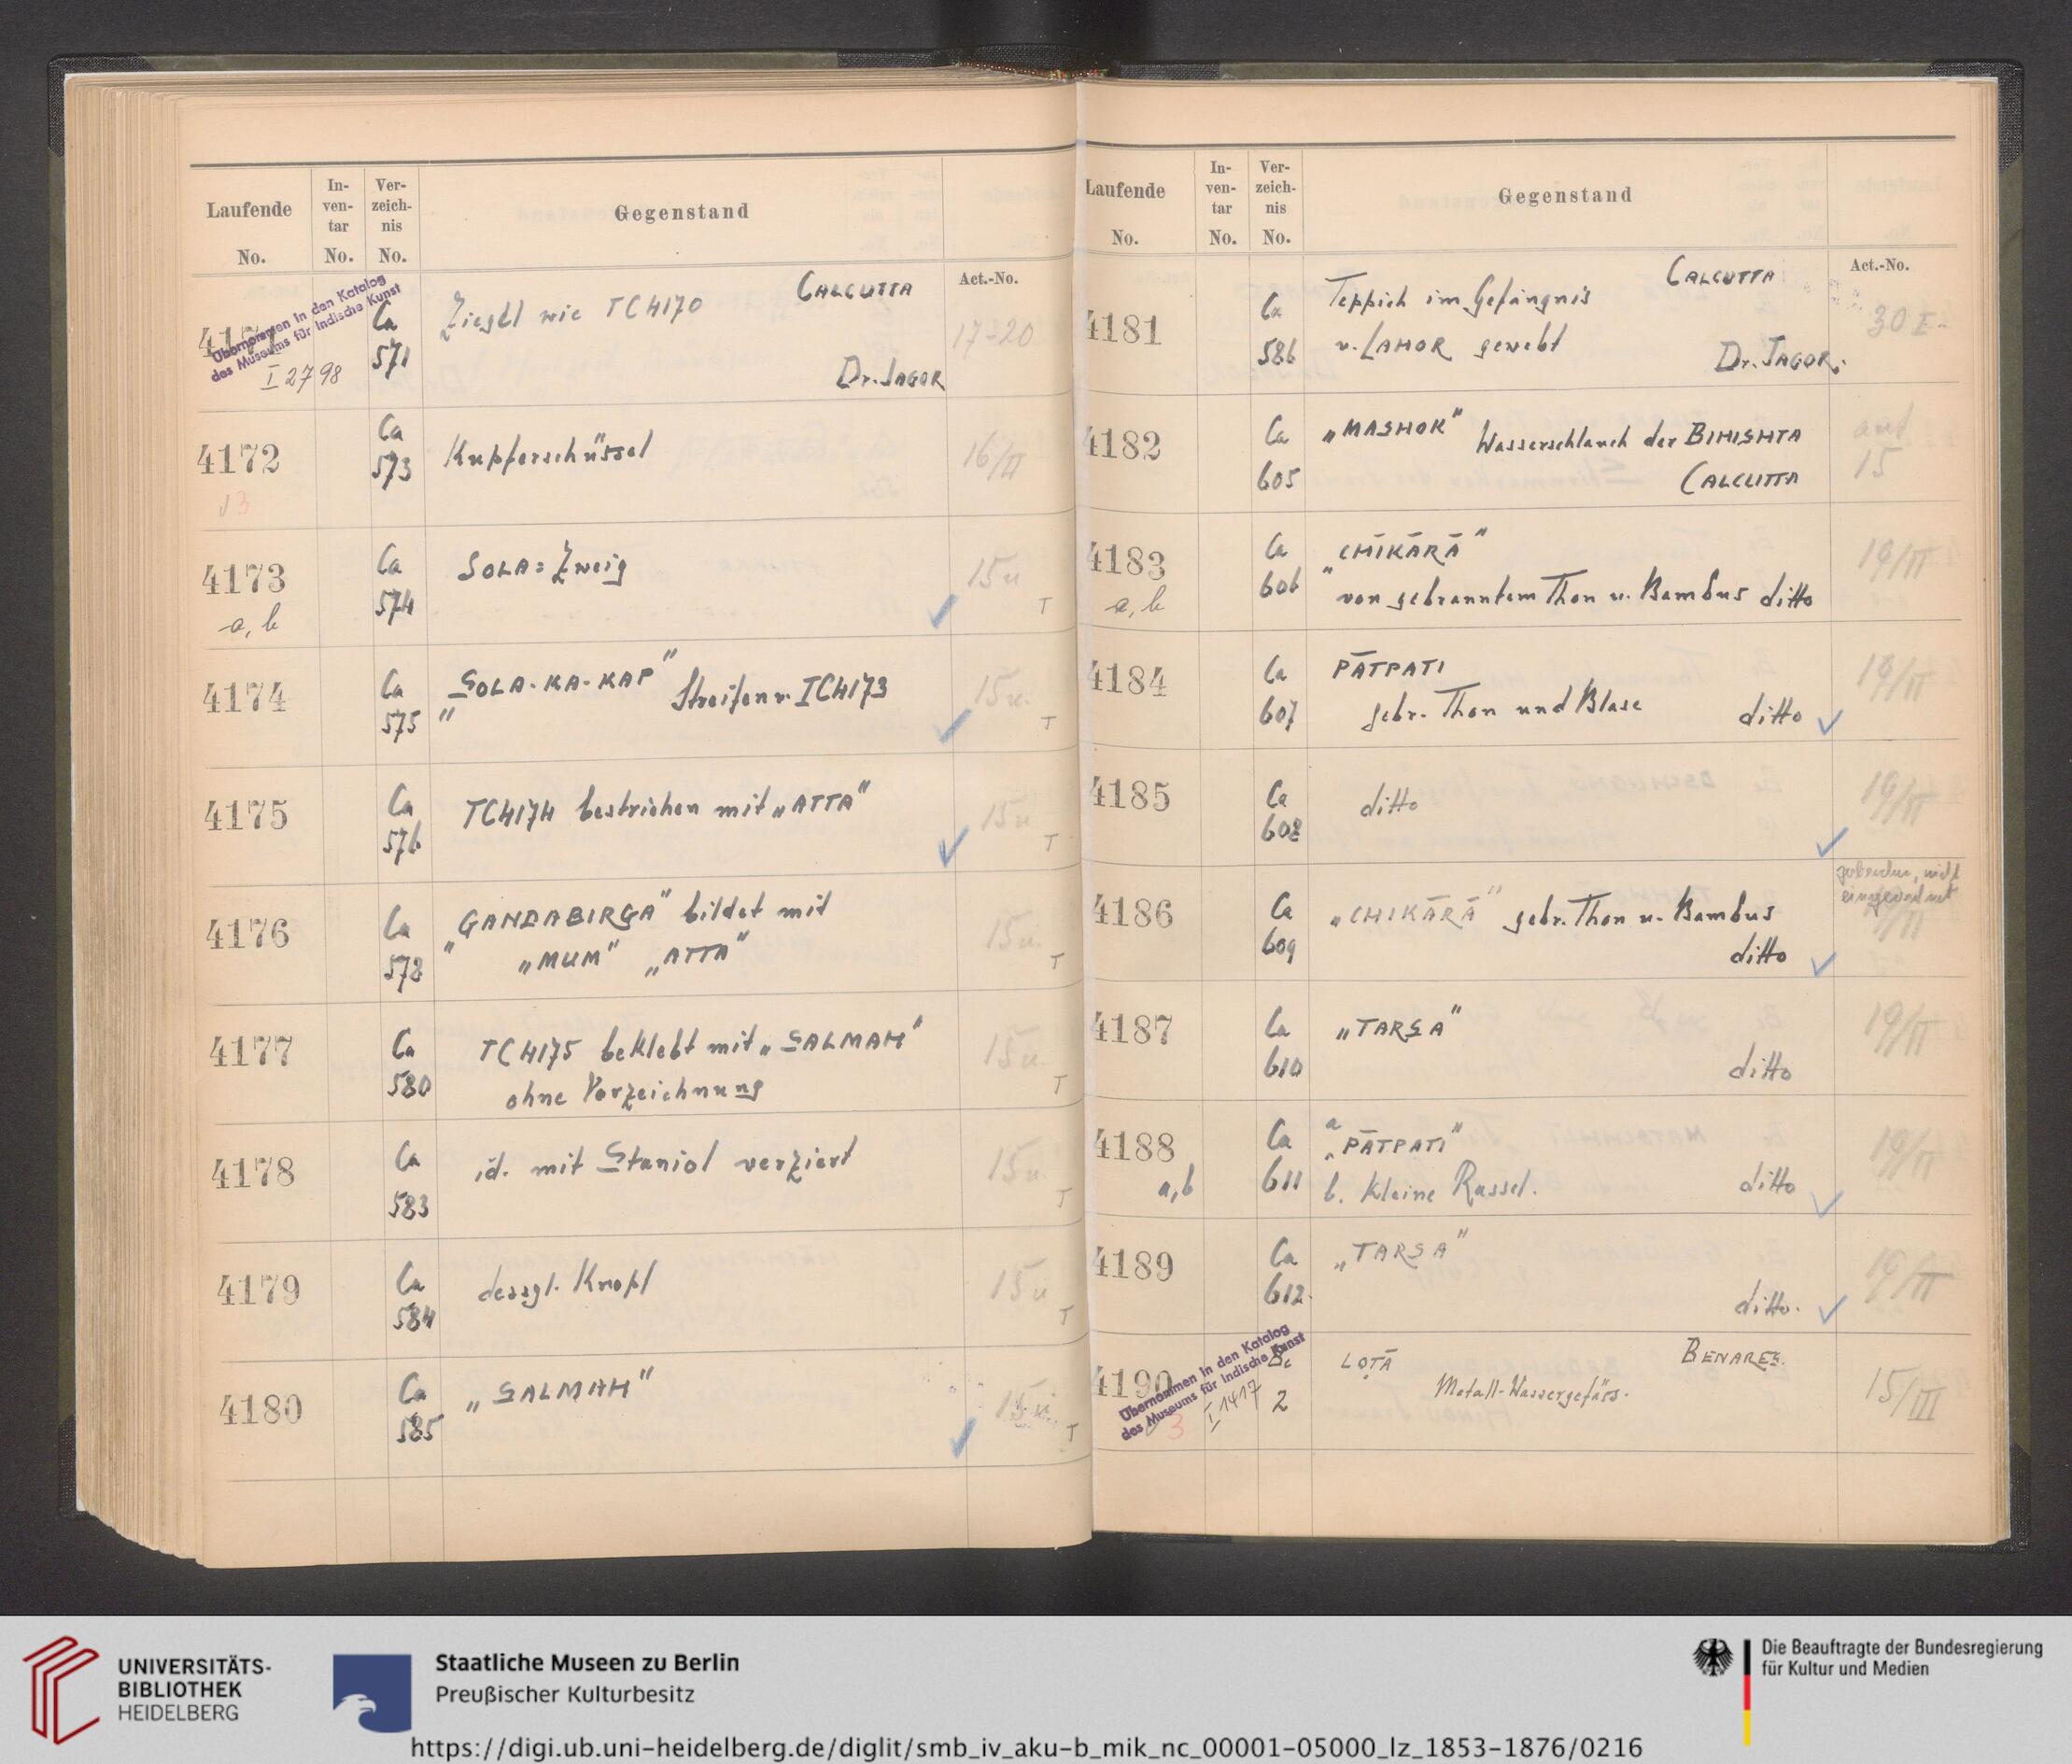 Laufende No.
In-ven-tar No.
Ver-zeich-nis No.
Gegenstand
Act.-No.
4171
Übernommen in den Katalog
des Museums für Indische Kunst
I 2798
Ca 571
Ziegel wie TC4170
CALCUTTA
Dr. JAGOR
17-20
4172
13
Ca 573
Kupferschüssel
16/II
4173
a, b
Ca 574
SOLA = Zweig
15u
T
4174
Ca 575
"SOLA-KA-KAP" Streifen v. IC4173
15u.
T
4175
Ca 576
TC4174 bestrichen mit „ATTA"
15u
T
4176
Ca 578
„GANDABIRGA" bildet mit
„MUM" „ATTA"
15u.
T
4177
Ca 580
TC4175 beklebt mit „SALMAH"
ohne Vorzeichnung
15u.
T
4178
Ca 583
id. mit Staniol verziert
15u.
T
4179
Ca 584
dessgl. Knopf
15u
T
4180
Ca 585
„SALMAH"
15u.
T
Laufende No.
In-ven-tar No.
Ver-zeich-nis No.
Gegenstand
Act.-No.
4181
Ca 586
Teppich im Gefängnis
v. LAHOR gewebt
CALCUTTA
Dr. JAGOR.
30 I.
4182
Ca 605
„MASHOK" Wasserschlauch der BIHISHTA
CALCUTTA
15
4183
a, b
Ca 606
„CHĪKĀRĀ"
von gebranntem Thon u. Bambus ditto
19/II
4184
Ca 607
PĀTPATI
gebr. Thon und Blase ditto
19/II
4185
Ca 608
ditto
19/II
4186
Ca 609
„CHIKĀRĀ" gebr. Thon u. Bambus
ditto
nicht
eingeordnet
4187
Ca 610
„TARSA"
ditto
19/II
4188
a, b
Ca 611
a „PĀTPATI"
b. Kleine Rassel. ditto
19/II
4189
Ca 612.
„TARSA"
ditto.
19/II
4190
Übernommen in den Katalog
des Museums für Indische Kunst
I 1417
3
2
LOṬĀ
BENARES.
Metall-Wassergefäss.
15/III
UNIVERSITÄTS-
BIBLIOTHEK
HEIDELBERG
Staatliche Museen zu Berlin
Preußischer Kulturbesitz
Die Beauftragte der Bundesregierung
für Kultur und Medien
https://digi.ub.uni-heidelberg.de/diglit/smb_iv_aku-b_mik_nc_00001-05000_lz_1853-1876/0216